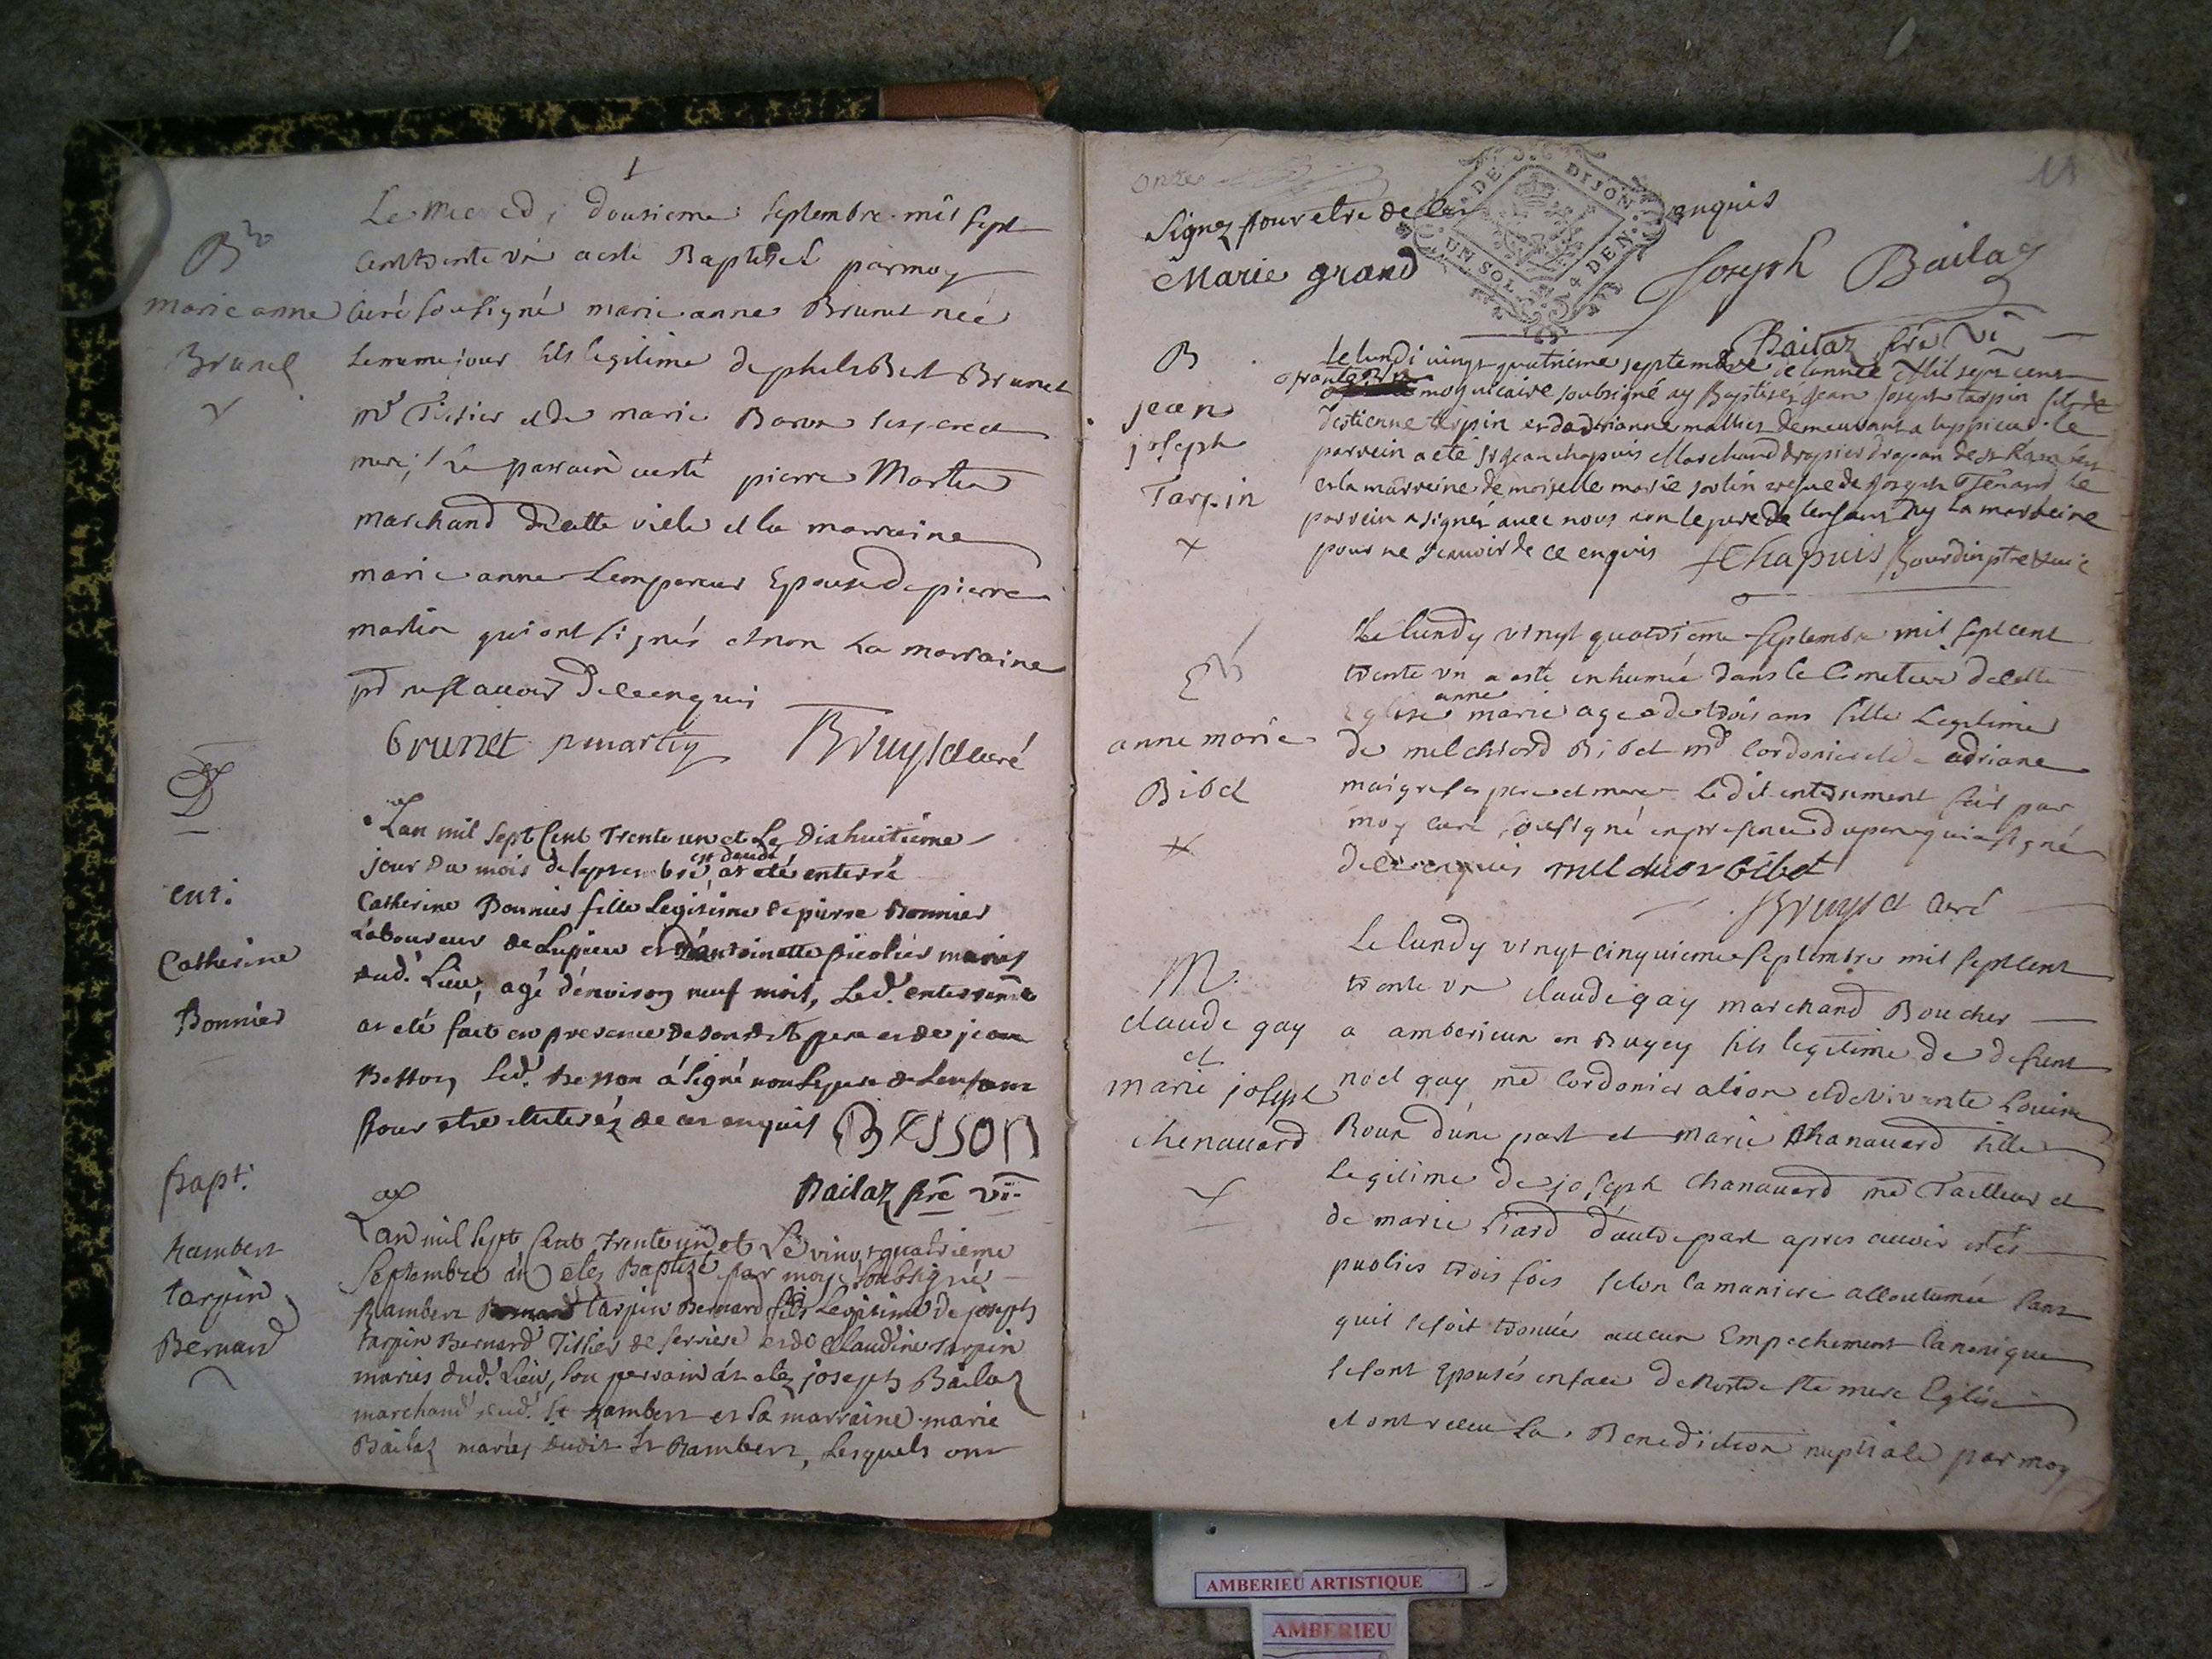 Le Mecred, dousieme septembre mil sept
cent trente vn a esté Baptisé par moy
curé sousigné marie anne Brunet née
le meme jour fils legitime de philiBert Brunet
md Tissier et de marie Baron ses pere et
mere; Le parrain a esté pierre Martin
marchand de cette ville et la marraine
marie anne Lempereur Epouse de pierre
martin qui ont signés et non La marraine
de ce enquis
brunet pmartin Bruyset curé
B
marie anne
Brunet
D
ent:
Catherine
Bonnier
Lan mil sept Cent Trente un et Le Dixhuitieme
jour du mois de septembre est decedé at eté enterré
Catherine Bonnier fille Legitime de pierre Bonnier
Laboureur de Lupieu et d'antoinette picolier mariés
dud. Lieu, agé d'environ neuf mois, Led. enterremt
at eté fait en presence de sondit pere et de jean
Besson, Led. Besson a signé non Le pere de Lenfant
pour etre de ce enquis BESSON
Bailaz prê vi.
bapt:
Rambert
tarpin
Bernard
Lan mil sept Cent trente un et Le vingt quatrieme
Septembre at etez Baptizé par moy soussigné
Rambert tarpin Bernard fils Legitime de joseph
tarpin Bernard Tissier de serriere et de Claudine tarpin
mariés dud. Lieu, son parrain at etez joseph Bailaz
marchand dud. St Rambert et sa marraine marie
Bailaz mariés dudit St Rambert, Lesquels ont
11
onze
signez pour etre de ce enquis
Marie grand Joseph Bailaz
DE DIJON
UN SOL DEN.
Bailaz prê vi
B
jean
joseph
Tarpin
Le lundi vingt quatrieme septembre de lannée Mil sept cent
trente un moy vicaire soubsigné ay Baptisés jean joseph tarpin fils
destienne tarpin et dadrianne mallier demeurant a luppieu. le
parrein a eté sr jean chapuis Marchand drapier drapan de st Rambert
et la marreine demoiselle marie veufve de joseph le
parrein a signés avec nous non le pere de lenfant ny la marreine
pour ne scavoir de ce enquis JChapuis Bourdin ptre vic
Et
anne marie
Bibet
Le lundy vingt quatrieme septembre mil sept cent
trente vn a esté inhumée dans le Cimetiere de cette
Eglise anne marie agee de trois ans fille Legitime
de melchiord Bibet md Cordonier et de adriane
maigre ses pere et mere Ledit enterrement fait par
moy curé sousigné en presence du pere qui a signé
de ce enquis melchior bibet
Bruyset curé
M.
claude gay
et
marie joseph
chenavard
Le lundy vingt cinquieme septembre mil sept cent
trente vn claude gay marchand Boucher
a amberieux en Bugey fils legitime de defunt
noel gay md Cordonier a lion et de vivante Louise
Roux d'une part et marie Chanavard fille
Legitime de joseph Chanavard md Tailleur et
de marie Liard d'autre part apres avoir estés
publiés trois fois selon la maniere accoutumée sans
quil se soit trouvés aucun Empechement Canonique
se sont Epousés en face de notre ste mere Eglise
et ont receu La Benediction nuptiale par moy
AMBERIEU ARTISTIQUE
AMBERIEU